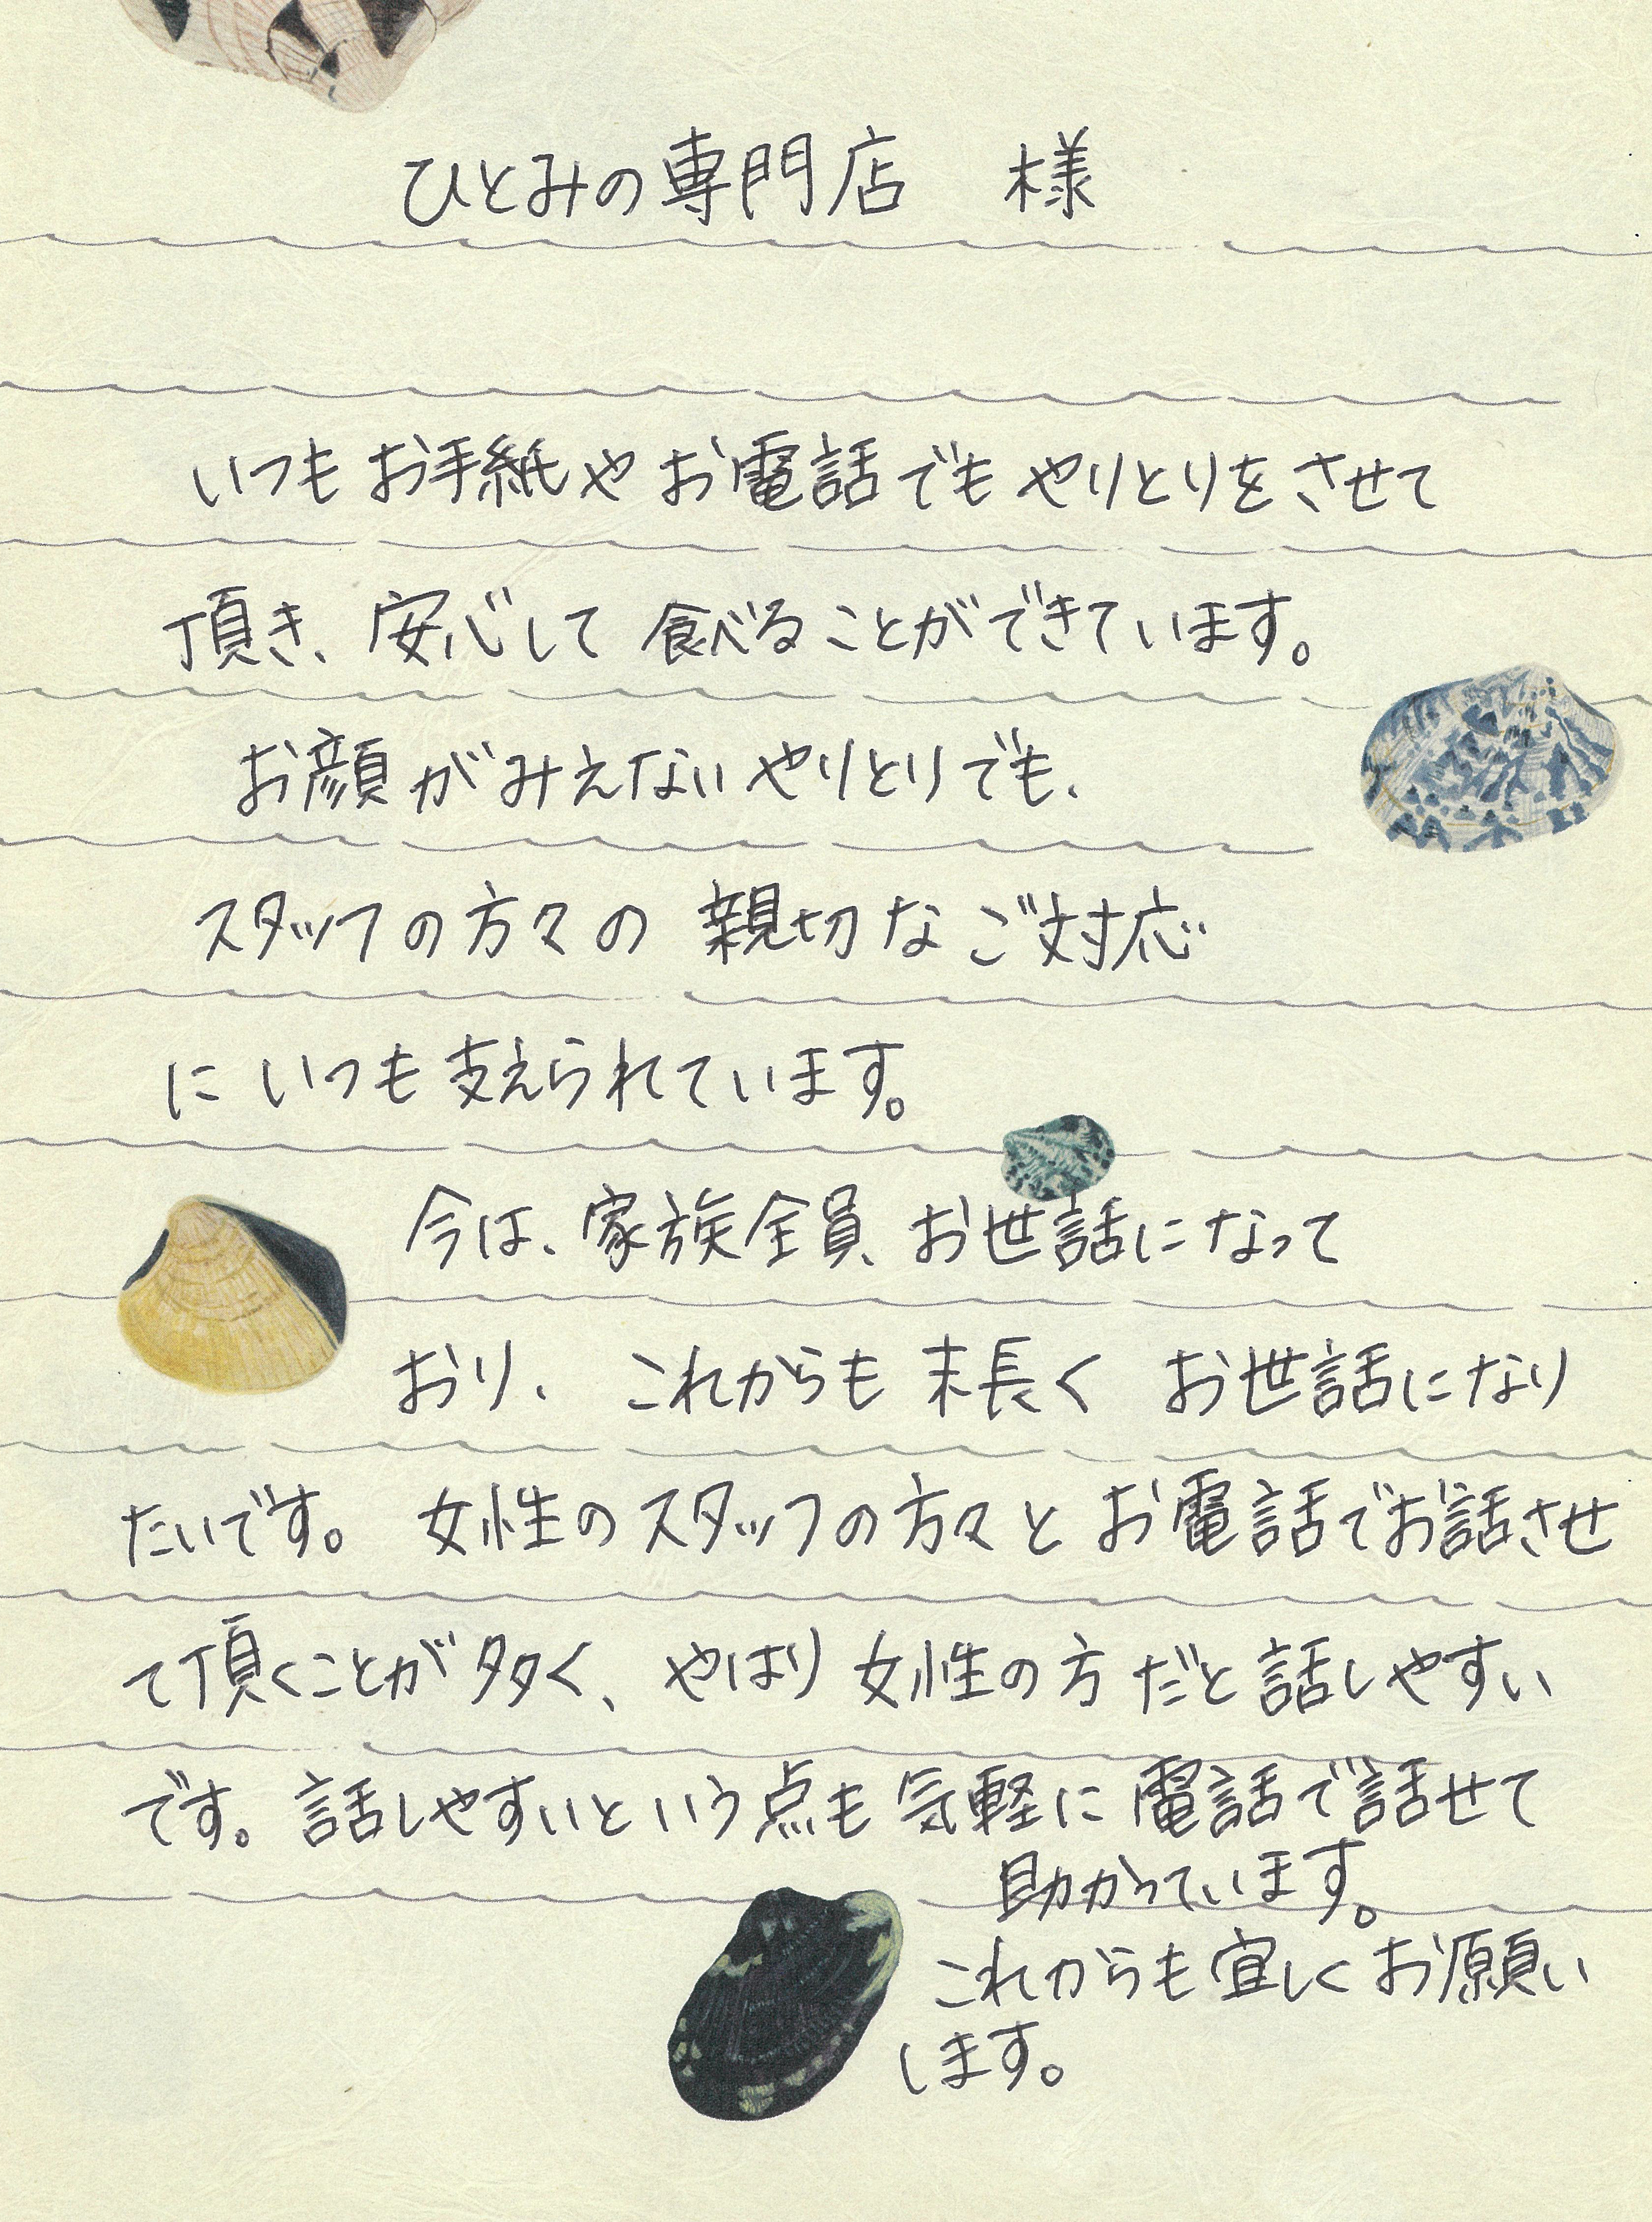 ひとみの専門店　様
いつもお手紙やお電話でもやりとりをさせて
頂き、安心して食べることができています。
お顔がみえないやりとりでも、
スタッフの方々の親切なご対応
にいつも支えられています。
今は、家族全員、お世話になって
おり、これからも末長くお世話になり
たいです。女性のスタッフの方々とお電話でお話させ
て頂くことが多く、やはり女性の方だと話しやすい
です。話しやすいという点も気軽に電話で話せて
助かっています。
これからも宜しくお願い
します。